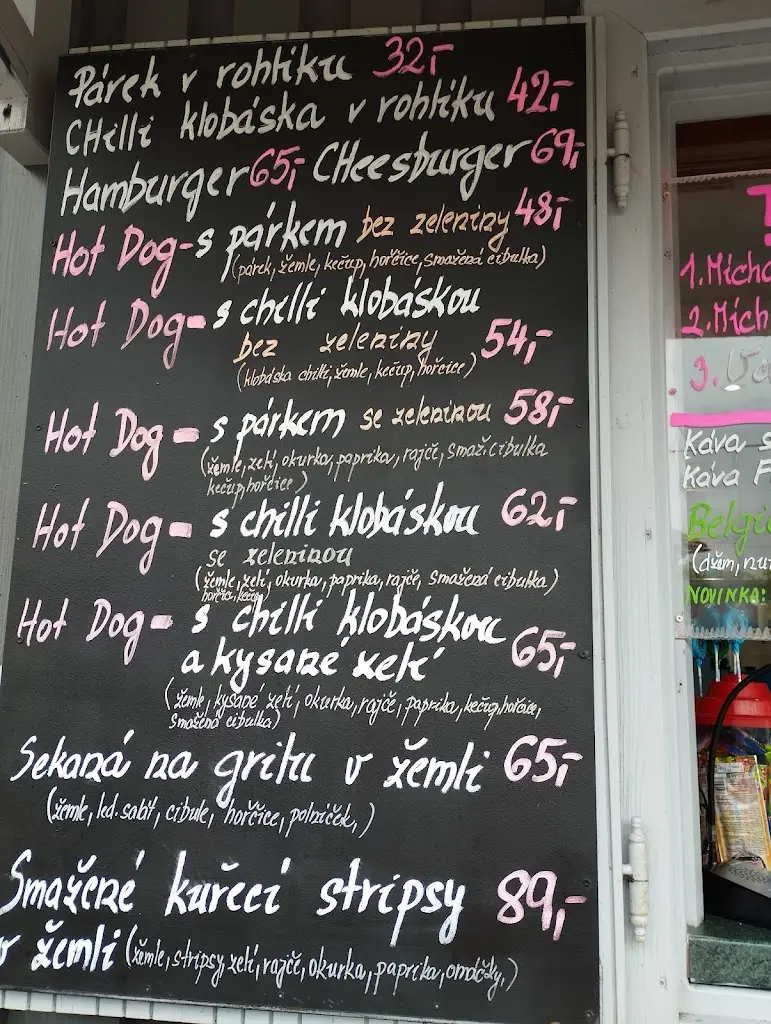 Párek v rohlíku 32,-
CHilli klobáska v rohlíku 42,-
Hamburger 65,- CHeesburger 69,-
Hot Dog - s párkem bez zeleniny 48,-
(párek, žemle, kečup, hořčice, smažená cibulka)
Hot Dog - s chilli klobáskou
bez zeleniny 54,-
(klobáska chilli, žemle, kečup, hořčice)
Hot Dog - s párkem se zeleninou 58,-
(žemle, zelí, okurka, paprika, rajče, smaž. cibulka
kečup, hořčice)
Hot Dog - s chilli klobáskou 62,-
se zeleninou
(žemle, zelí, okurka, paprika, rajče, smažená cibulka)
hořčice, kečup
Hot Dog - s chilli klobáskou
a kysané zelí 65,-
(žemle, kysané zelí, okurka, rajče, paprika, kečup, hořčice,
smažená cibulka)
Sekaná na grilu v žemli 65,-
(žemle, led. salát, cibule, hořčice, polníček,)
Smažené kuřecí stripsy 89,-
v žemli (žemle, stripsy, zelí, rajče, okurka, paprika, omáčky,)
1. Mícha
2. Mích
3.
Káva s
Káva F
Belgic
(džem, nu
NOVINKA: